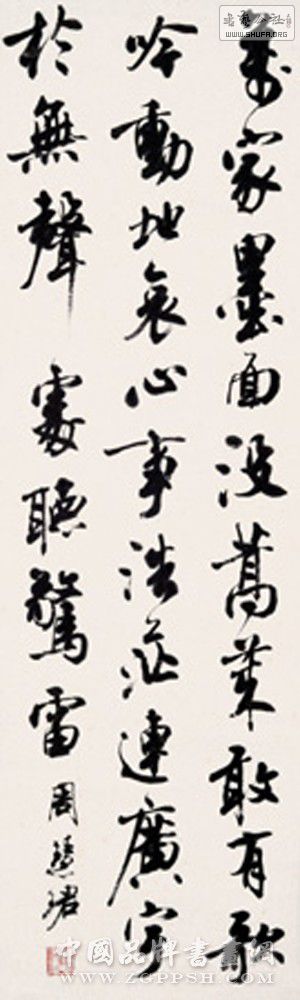 萬家墨面没蒿莱敢有歌
吟動地哀心事浩茫連廣宇
於無聲處聽驚雷 周慧珺
WWW.SHUFA.ORG
中國品牌書畫網
WWW.ZGPPSH.COM